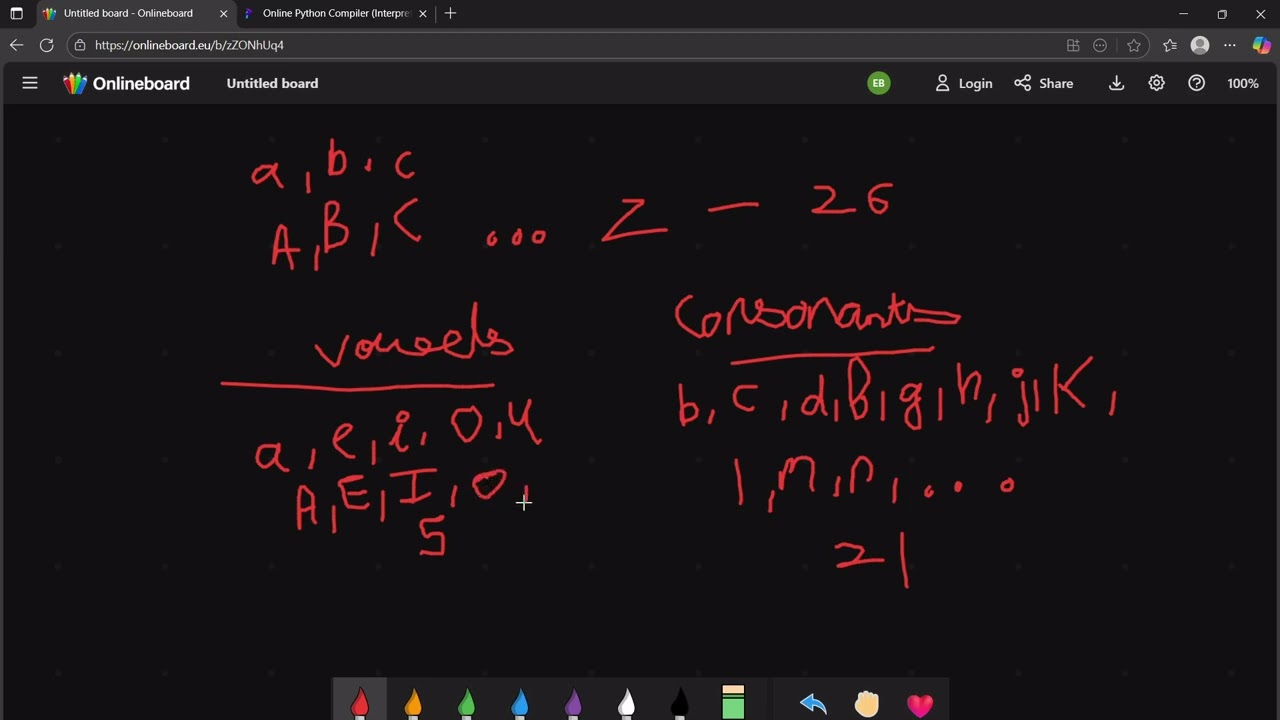 Untitled board - Onlineboard
Online Python Compiler (Interpre
https://onlineboard.eu/b/zZONhUq4
Onlineboard
Untitled board
EB
Login
Share
100%
a, b. c
A, B, C ... Z — 26
Vowels
Consonants
a, e, i, o, u
b, c, d, B, g, h, j, K,
A, E, I, O,
l, m, n, ...
5
21